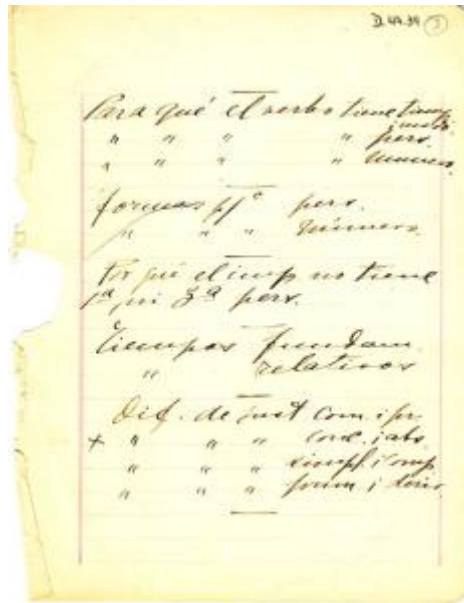 Para qué el verbo tiene tiemp
i modo
" " " " pers.
" " " " número
formas pª pers.
" " " número
Por qué el imp no tiene
1ª ni 3ª pers.
Tiempos fundam.
" relativos
Dif. de sust com. i pr
+ " " " conc. i abs
" " " simpl. i comp
" " " prim. i deriv